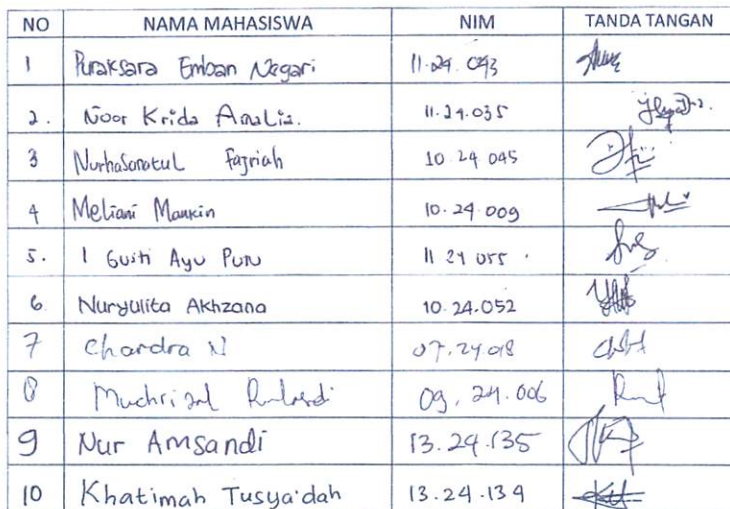 NO NAMA MAHASISWA NIM TANDA TANGAN
1 Puraksara Emban Nagari 11.24.043
2. Noor Krida Amalia. 11.24.035
3 Nurhasanatul Fajriah 10.24 045
4 Meliani Mankin 10.24.009
5. I Gusti Ayu Putu 11 24 055
6. Nuryulita Akhzana 10.24.052
7 Chandra N 07.24.018
8 Muchrizal 09.24.006
9 Nur Amsandi 13.24.135
10 Khatimah Tusya'dah 13.24.134